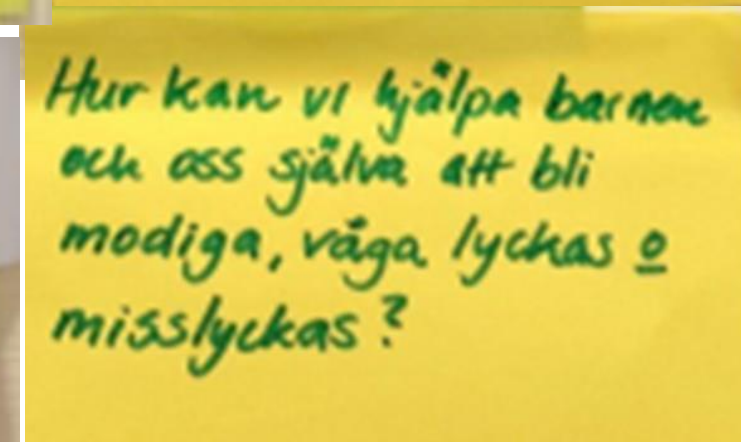 Hur kan vi hjälpa barnen
och oss själva att bli
modiga, våga lyckas o
misslyckas?